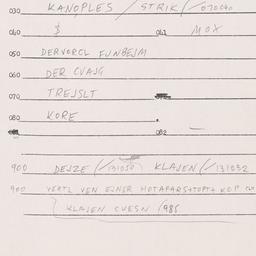 030 KANOPLES / STRIK / 070040
040 $ 041 MOX
050 DERVORCL FUNBEJM
060 DER CVAJG
070 TREJSLT
080 KORE
082 —
900 DEJZE (/131050) KLAJEN (/131032
900 VERTL VEN EJNER HOTAPARSTOPTA KOP
KLAJEN CVESN /985